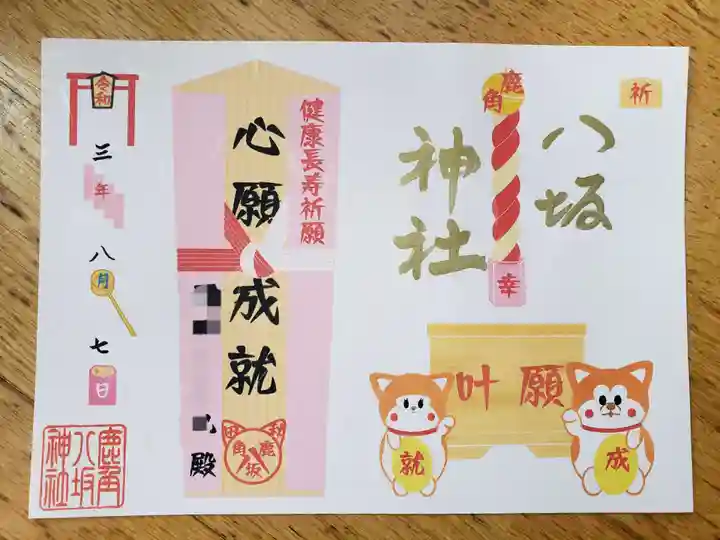 祈
八坂
鹿角
神社
幸
願叶
成就
健康長寿祈願
心願成就
殿
鹿角
八坂
令和
三年八月七日
鹿角
八坂
神社